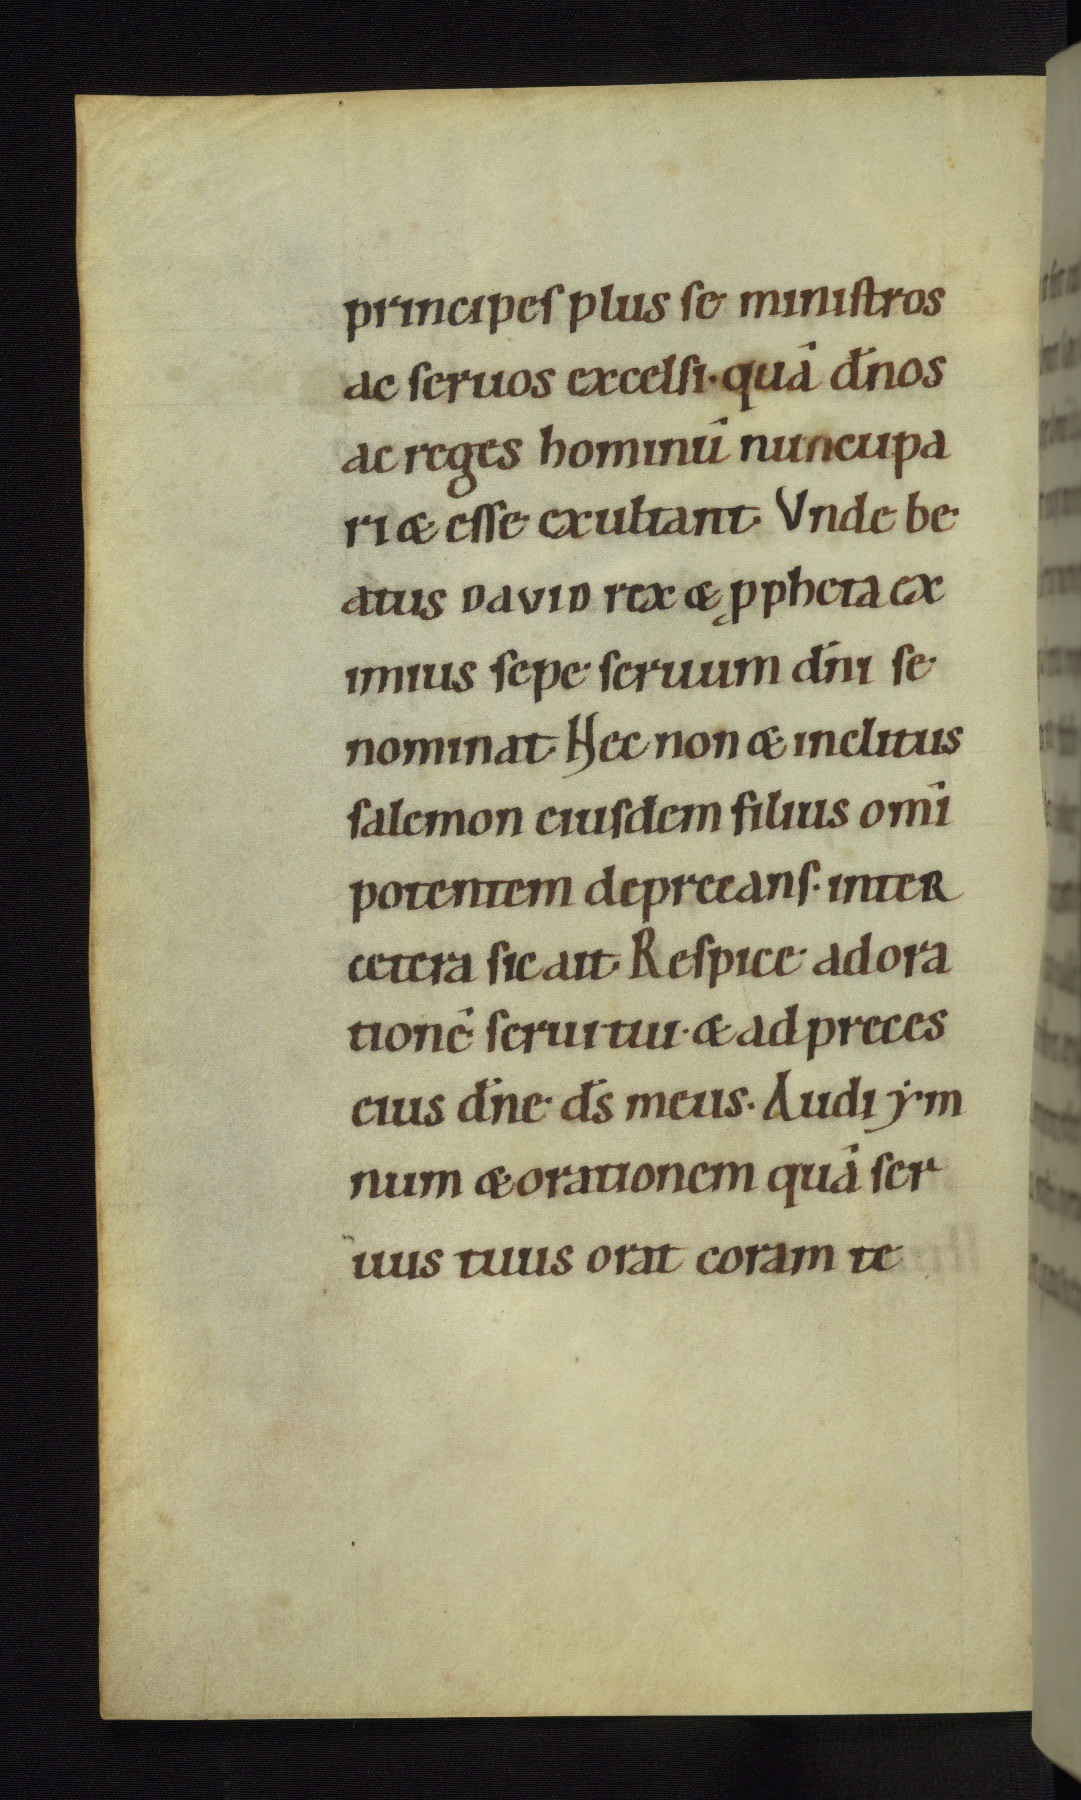 principeſ plus ſe miniſtros
ac ſeruos excelſi· quā dn̄os
ac reges hominū nuncupa
ri & eſſe exultant. Vnde be
atus DAVID rex & ꝓpheta ex
imius ſepe ſeruum dn̄i ſe
nominat. Hec non & inclitus
ſalemon eiuſdem filius omī
potentem deprecanſ. inteR
cetera ſic ait. Reſpice ad ora
tionē ſerui tui· & ad preces
eius dn̄e ds̄ meus. Audi ẏm
num & orationem quā ſer
uus tuus orat coram te